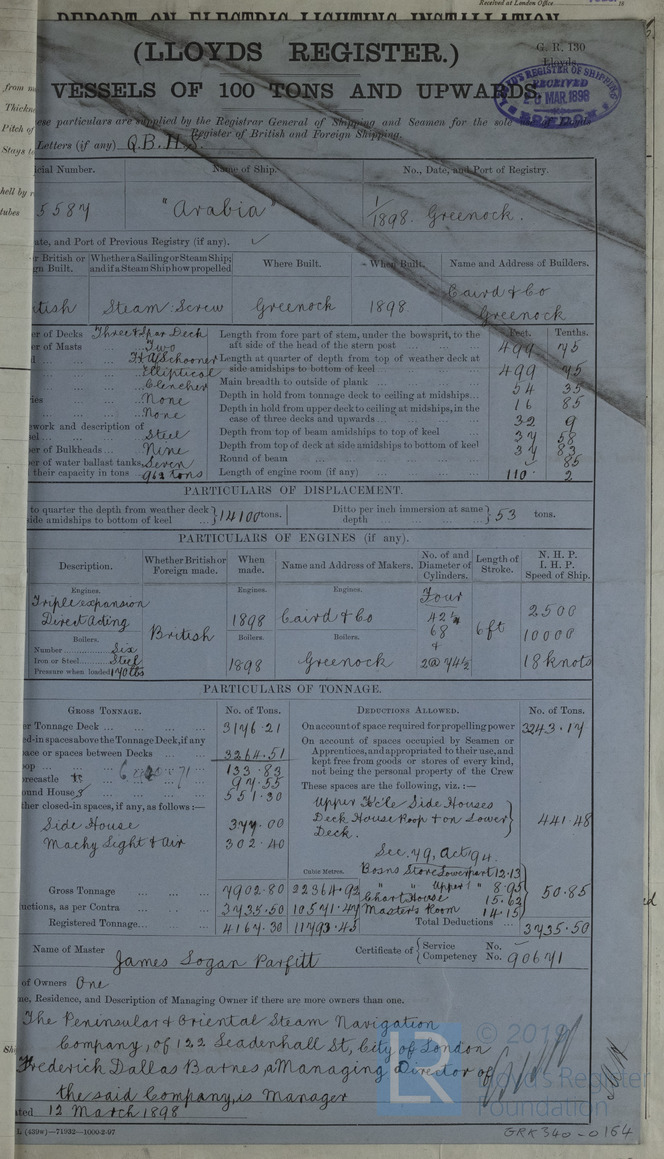 Received at London Office
REPORT ON ELECTRIC LIGHTING INSTALLATION
(LLOYDS REGISTER.)
G. R. 130
Lloyds
LLOYD'S REGISTER OF SHIPPING
RECEIVED
MAR.1898
LONDON
VESSELS OF 100 TONS AND UPWARDS.
ese particulars are supplied by the Registrar General of Shipping and Seamen for the sole
Register of British and Foreign Shipping.
Letters (if any) Q.B.H.S.
icial Number. Name of Ship. No., Date, and Port of Registry.
5587 "Arabia" 1/1898 Greenock.
ate, and Port of Previous Registry (if any). ✓
r British or Whether a Sailing or Steam Ship; Where Built. When Built. Name and Address of Builders.
gn Built. and if a Steam Ship how propelled
Caird & Co
itish Steam: Screw Greenock 1898 Greenock
er of Decks Three & Spar Deck Length from fore part of stem, under the bowsprit, to the Feet. Tenths.
er of Masts Two aft side of the head of the stern post 499 75
F & A Schooner Length at quarter of depth from top of weather deck at
Elliptical side amidships to bottom of keel 499 75
Clencher Main breadth to outside of plank 54 35
ries None Depth in hold from tonnage deck to ceiling at midships 16 85
None Depth in hold from upper deck to ceiling at midships, in the
ework and description of case of three decks and upwards 32 9
el Steel Depth from top of beam amidships to top of keel 37 58
er of Bulkheads Nine Depth from top of deck at side amidships to bottom of keel 37 83
er of water ballast tanks, Seven Round of beam ✓ 85
their capacity in tons 962 tons Length of engine room (if any) 110 2
PARTICULARS OF DISPLACEMENT.
to quarter the depth from weather deck Ditto per inch immersion at same
side amidships to bottom of keel } 14100 tons. depth } 53 tons.
PARTICULARS OF ENGINES (if any).
Description. Whether British or Foreign made. When made. Name and Address of Makers. No. of and Diameter of Cylinders. Length of Stroke. N. H. P. I. H. P. Speed of Ship.
Engines. Engines. Engines. Four
Triple expansion 2500
Direct Acting 1898 Caird & Co 42½
Boilers. British Boilers. Boilers. 68 6ft 10000
Number Six &
Iron or Steel Steel 1898 Greenock 2@74½ 18 knots
Pressure when loaded 170 lbs
PARTICULARS OF TONNAGE.
GROSS TONNAGE. No. of Tons. DEDUCTIONS ALLOWED. No. of Tons.
er Tonnage Deck 3176.21 On account of space required for propelling power 3243.17
ed-in spaces above the Tonnage Deck, if any On account of spaces occupied by Seamen or
ace or spaces between Decks 3264.51 Apprentices, and appropriated to their use, and
oop 133.83 kept free from goods or stores of every kind,
orecastle 97.55 not being the personal property of the Crew
ound Houses 551.30 These spaces are the following, viz.:—
ther closed-in spaces, if any, as follows:— Upper Fo'c'le Side Houses
Side House 377.00 Deck House Poop & on Lower } 441.48
Machy Light & Air 302.40 Deck.
Sec. 79, Act 94.
Cubic Metres. Bosns Store Lower part 12.13
Gross Tonnage 7902.80 22364.92 " " Upper " 8.95
uctions, as per Contra 3735.50 10571.47 Chart House 15.62 50.85
Registered Tonnage 4167.30 11793.45 Master's Room 14.15
Total Deductions 3735.50
Name of Master James Logan Parfitt Certificate of { Service No. ✓
Competency No. 90671
of Owners One
me, Residence, and Description of Managing Owner if there are more owners than one.
The Peninsular & Oriental Steam Navigation
Company, of 122 Leadenhall St, City of London
Frederick Dallas Barnes, a Managing Director of
the said Company, is Manager
ated 12 March 1898
L (439w)—71932—1000-2-97
GRK340-0164
LR © 2019
Lloyd's Register
Foundation
from
Thickne
Pitch of
Stays t
hell by r
tubes
Shi